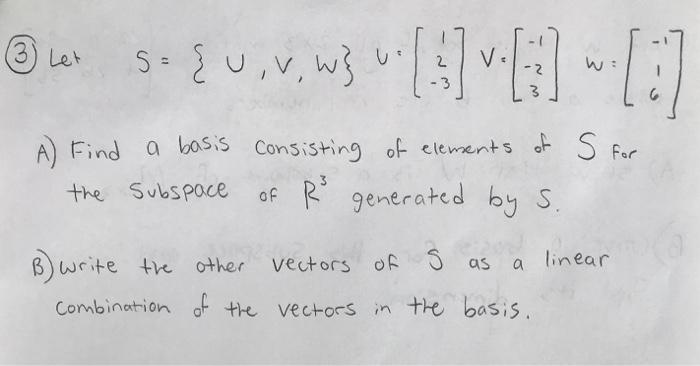 ③ Let S = { U , V , W } U = [1 2 -3] V = [-1 -2 3] W = [-1 1 6]
A) Find a basis consisting of elements of S for
the subspace of R³ generated by S.
B) Write the other vectors of S as a linear
combination of the vectors in the basis.